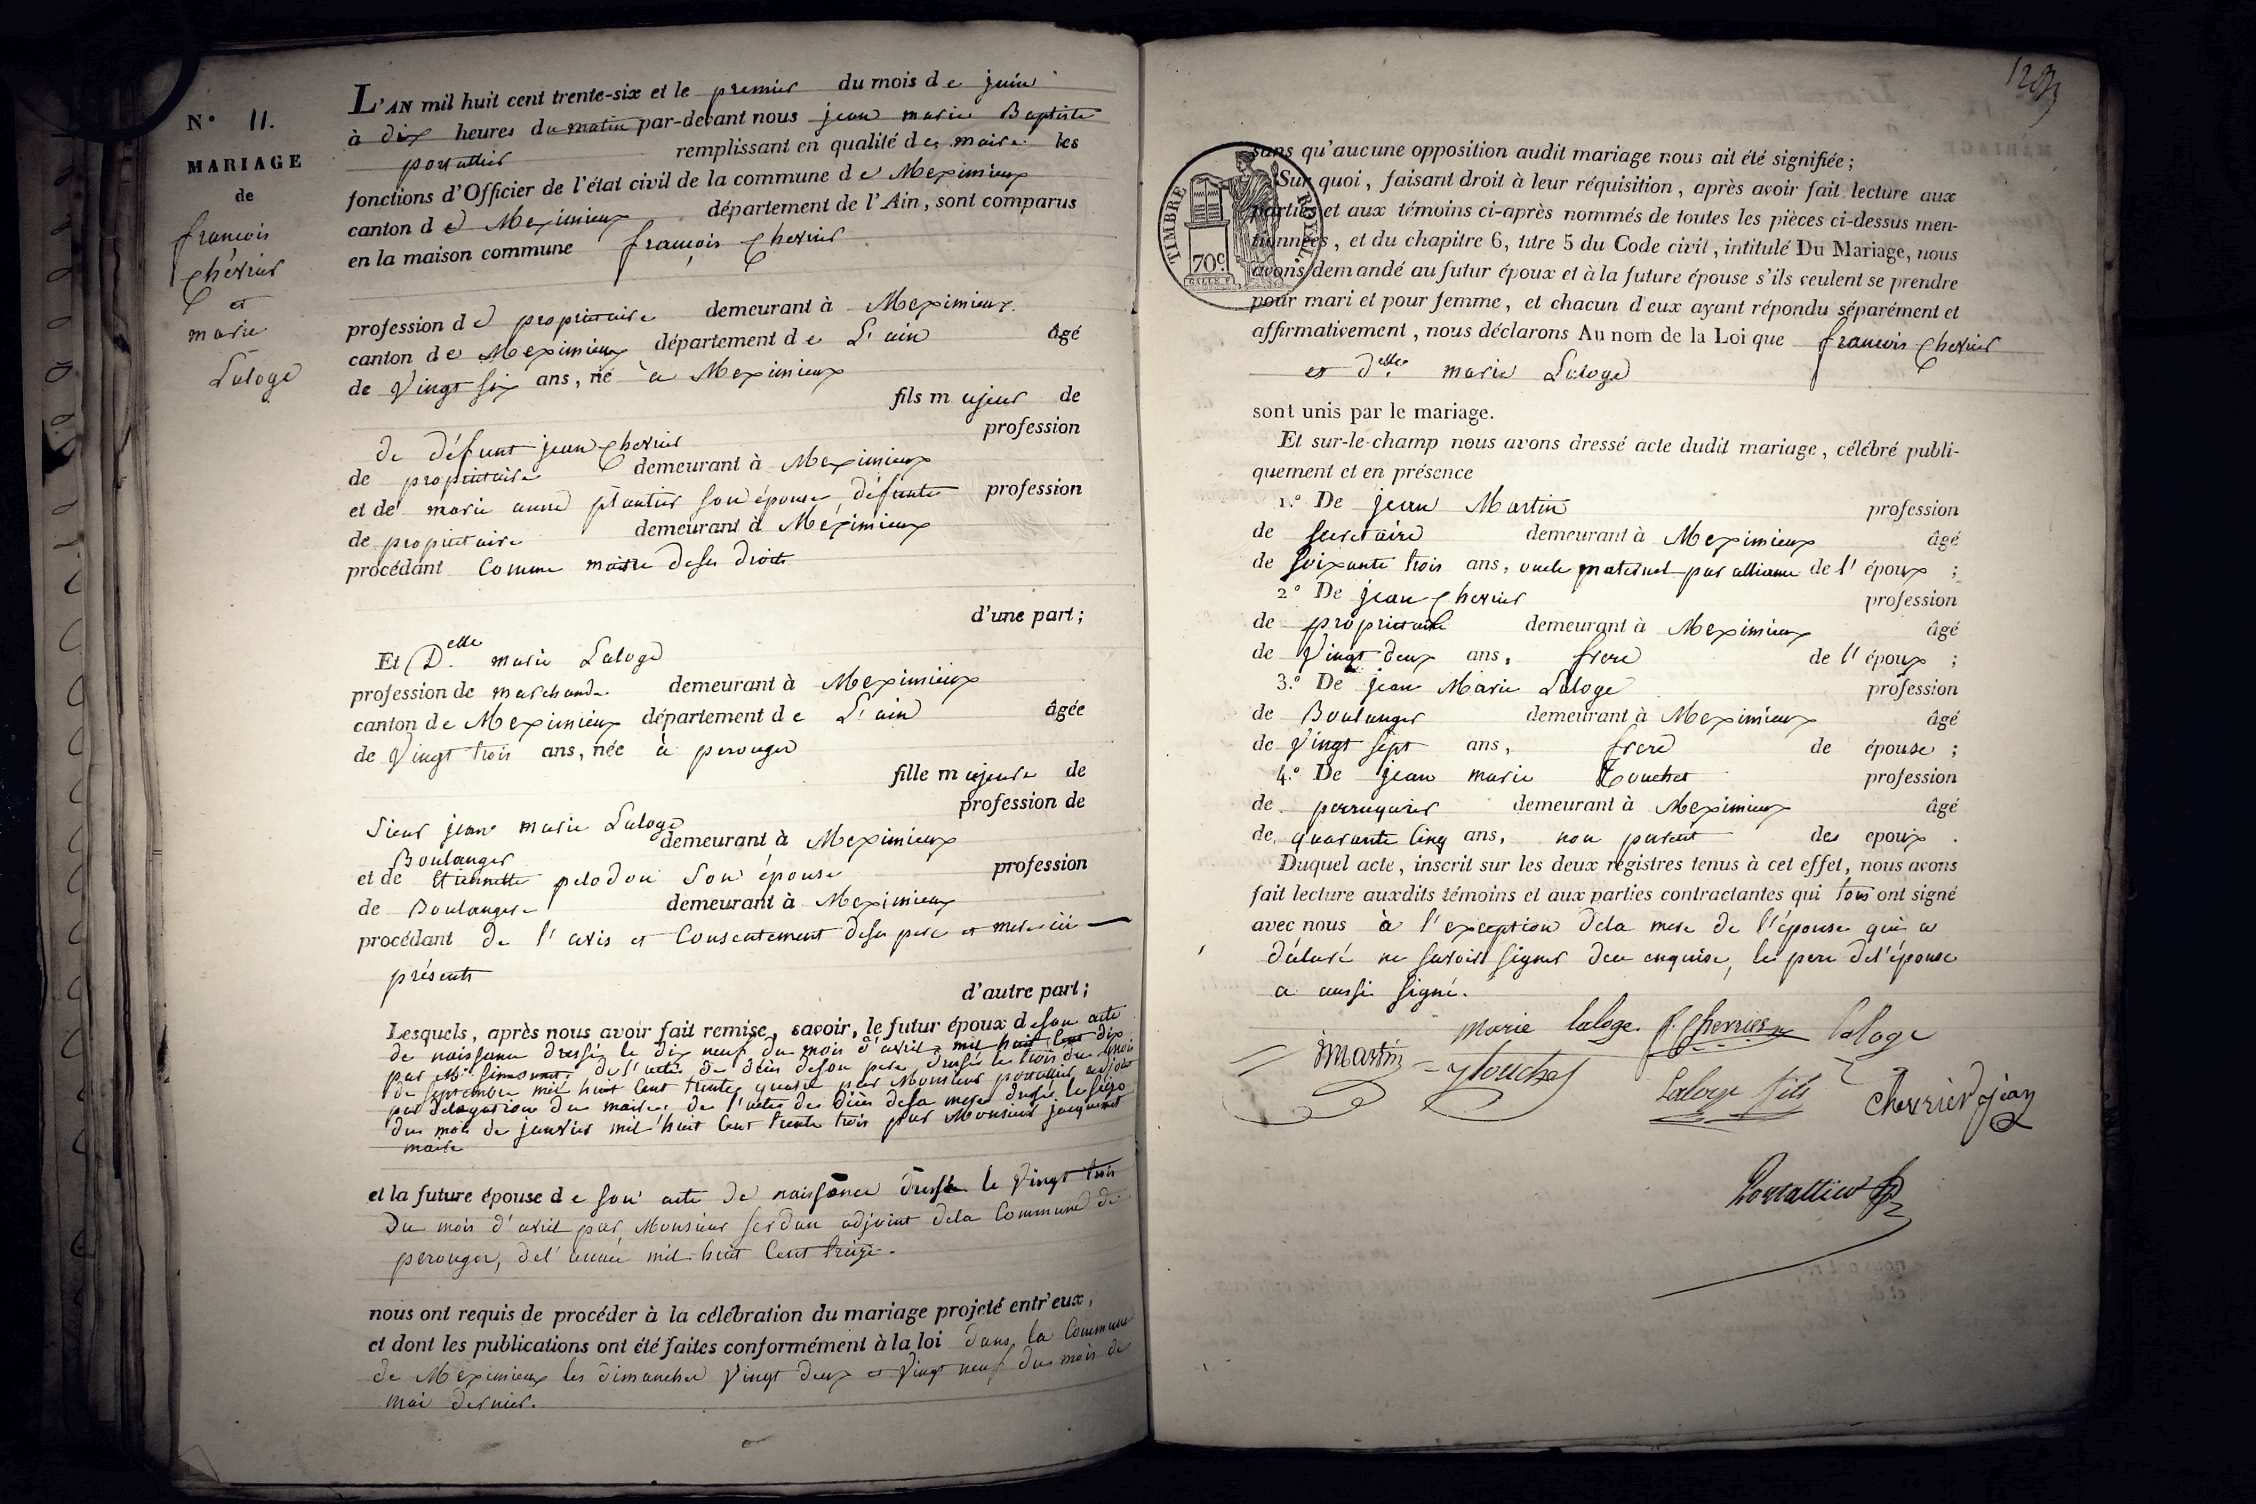 N° 11.
MARIAGE
de
francois
Chérier
et
marie
Laloge
L'AN mil huit cent trente-six et le premier du mois de juin
à dix heures du matin par-devant nous jean marie Baptiste
portallier remplissant en qualité de maire les
fonctions d'Officier de l'état civil de la commune de Meximieux
canton de Meximieux département de l'Ain, sont comparus
en la maison commune françois Cherier
profession de propriétaire demeurant à Meximieux.
canton de Meximieux département de L'ain âgé
de Vingt six ans, né à Meximieux
fils majeur de
de défunt jean Cherier profession
de propriétaire demeurant à Meximieux
et de marie anne plantier son épouse défunte profession
de propriétaire demeurant à Méximieux
procédant comme maitre de ses droits
d'une part;
Et Delle marie Laloge
profession de marchande demeurant à Meximieux
canton de Meximieux département de L'ain âgée
de Vingt trois ans, née à perouges
fille majeure de
Sieur jean marie Laloge profession de
Boulanger demeurant à Meximieux
et de Etiennette pelodou son épouse profession
de Boulangere demeurant à Meximieux
procédant de l'avis et Consentement de ses pere et mere ici
présents
d'autre part;
Lesquels, après nous avoir fait remise, savoir, le futur époux de son acte
de naissance dressé le dix neuf du mois d'avril mil huit cent dix
par Mr. de l'acte de décès de son pere dressé le trois du mois
de septembre mil huit cent trente quatre par Monsieur portallier adjoint
par délégation du maire, de l'acte de décès de sa mere dressé le
du mois de janvier mil huit cent trente trois par Monsieur jacquemet
maire
et la future épouse de son acte de naissance dressé le vingt trois
Du mois d'avril par Monsieur adjoint dela Commune de
perouges, del'année mil huit Cent treize.
nous ont requis de procéder à la célébration du mariage projeté entr'eux,
et dont les publications ont été faites conformément à la loi dans la Commune
de Meximieux les dimanches vingt deux et vingt neuf du mois de
mai dernier.
TIMBRE ROYAL
70c.
sans qu'aucune opposition audit mariage nous ait été signifiée;
Sur quoi, faisant droit à leur réquisition, après avoir fait lecture aux
parties et aux témoins ci-après nommés de toutes les pièces ci-dessus men-
tionnées, et du chapitre 6, titre 5 du Code civil, intitulé Du Mariage, nous
avons demandé au futur époux et à la future épouse s'ils veulent se prendre
pour mari et pour femme, et chacun d'eux ayant répondu séparément et
affirmativement, nous déclarons Au nom de la Loi que francois Cherier
et Delle marie Laloge
sont unis par le mariage.
Et sur-le-champ nous avons dressé acte dudit mariage, célébré publi-
quement et en présence
1.° De jean Martin profession
de secretaire demeurant à Meximieux âgé
de soixante trois ans, oncle maternel par alliance de l'époux ;
2° De jean Cherier profession
de propriétaire demeurant à Meximieux âgé
de Vingt deux ans, frere de l'époux ;
3.° De jean Marie Laloge profession
de Boulanger demeurant à Meximieux âgé
de Vingt sept ans, frere de épouse ;
4.° De jean marie Touchet profession
de perruquier demeurant à Meximieux âgé
de quarante cinq ans, non parent des epoux .
Duquel acte, inscrit sur les deux registres tenus à cet effet, nous avons
fait lecture auxdits témoins et aux parties contractantes qui tous ont signé
avec nous à l'exception dela mere de l'épouse qui a
déclaré ne savoir signer de ce enquise, le pere del'épouse
a aussi signé.
marie laloge. f. Cherrier laloge
Martin Touchet Laloge fils Cherrier jean
Portallier